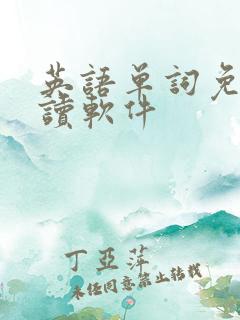 英語單詞免
讀軟件
丁亞萍
未经同意禁止转载